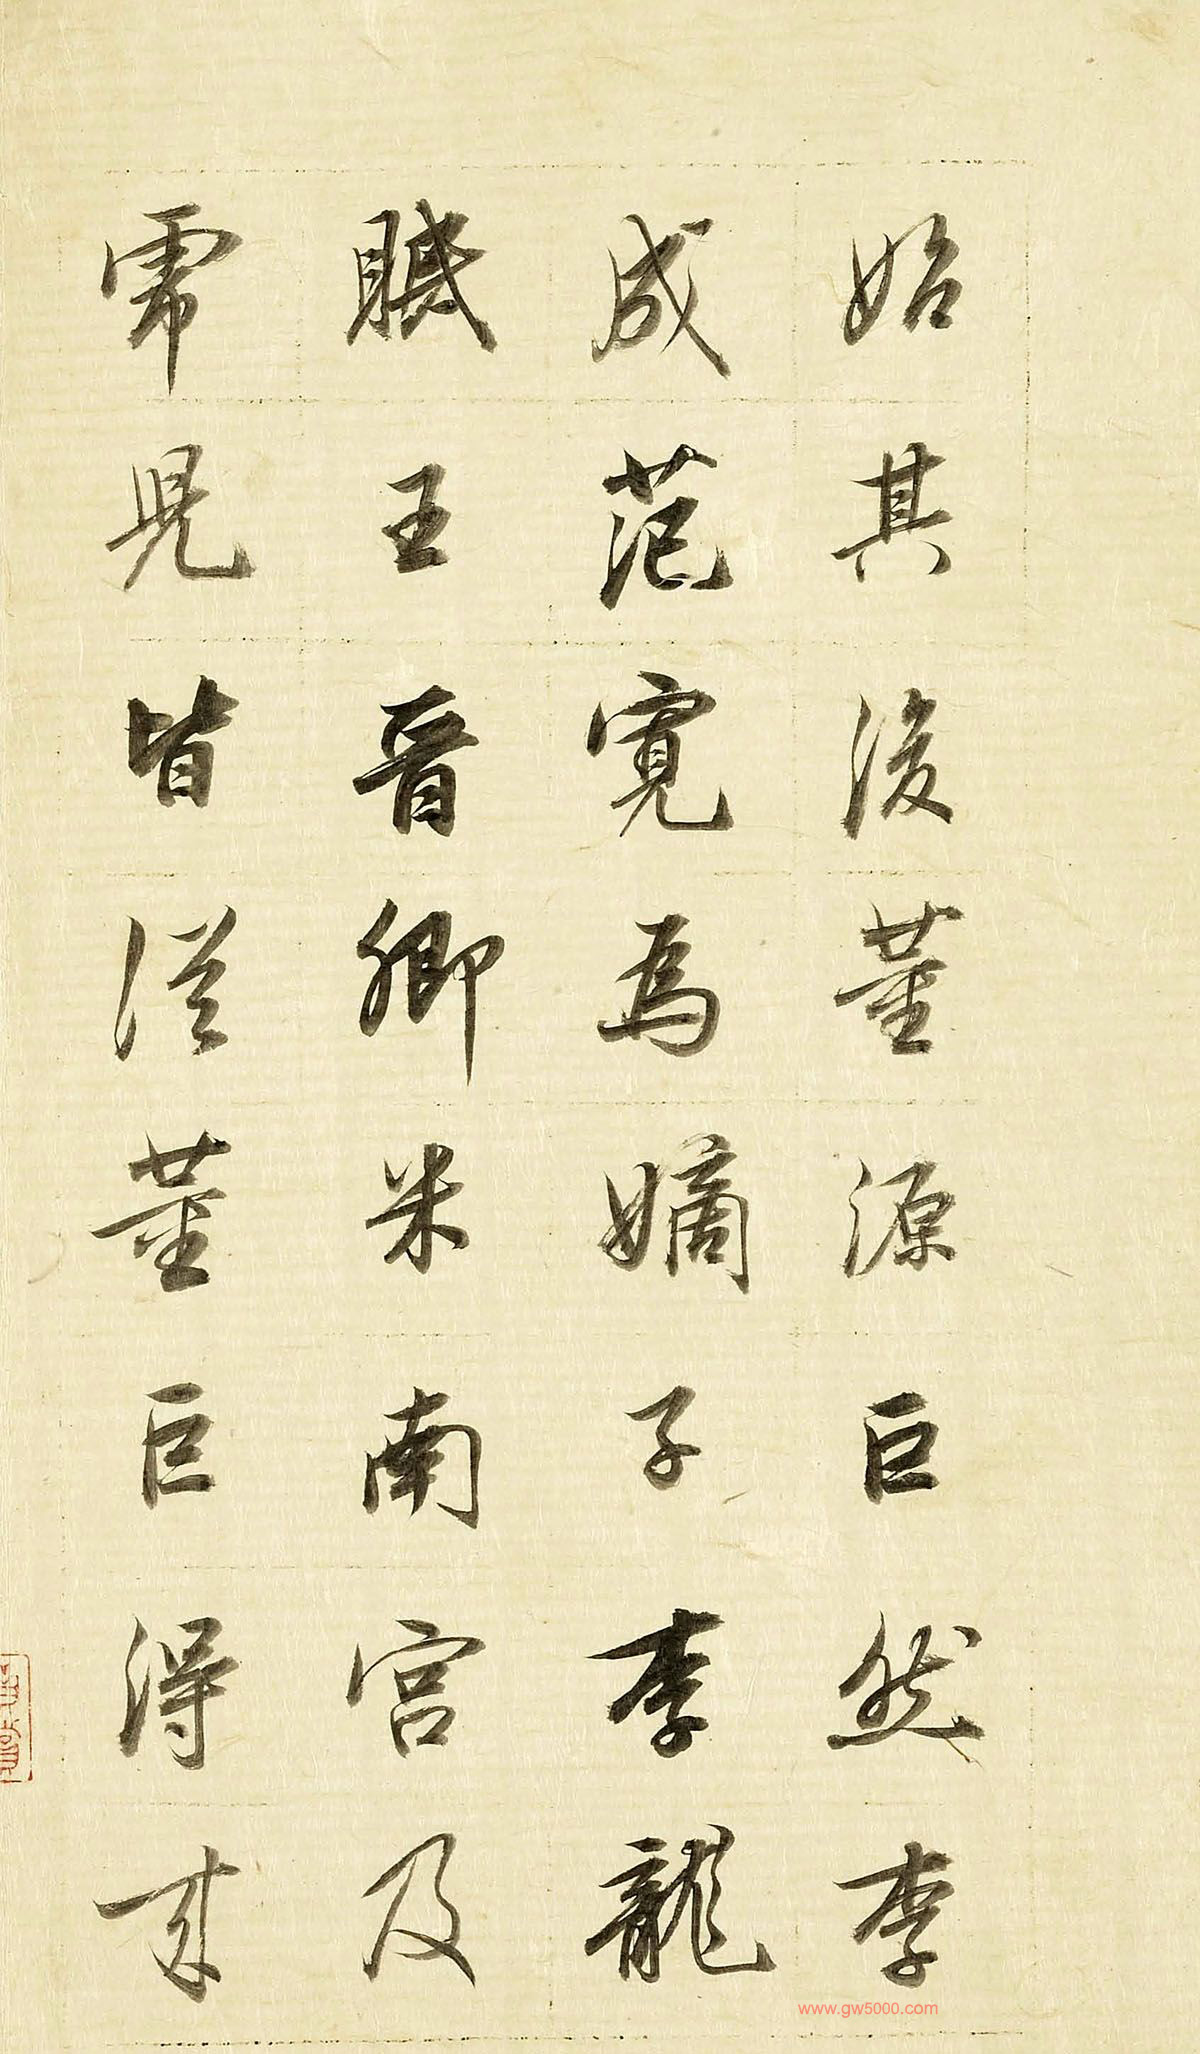 始其後董源巨然李
成范寬爲嫡子李龍
眠王晉卿米南宫及
虎兒皆從董巨得来
www.gw5000.com